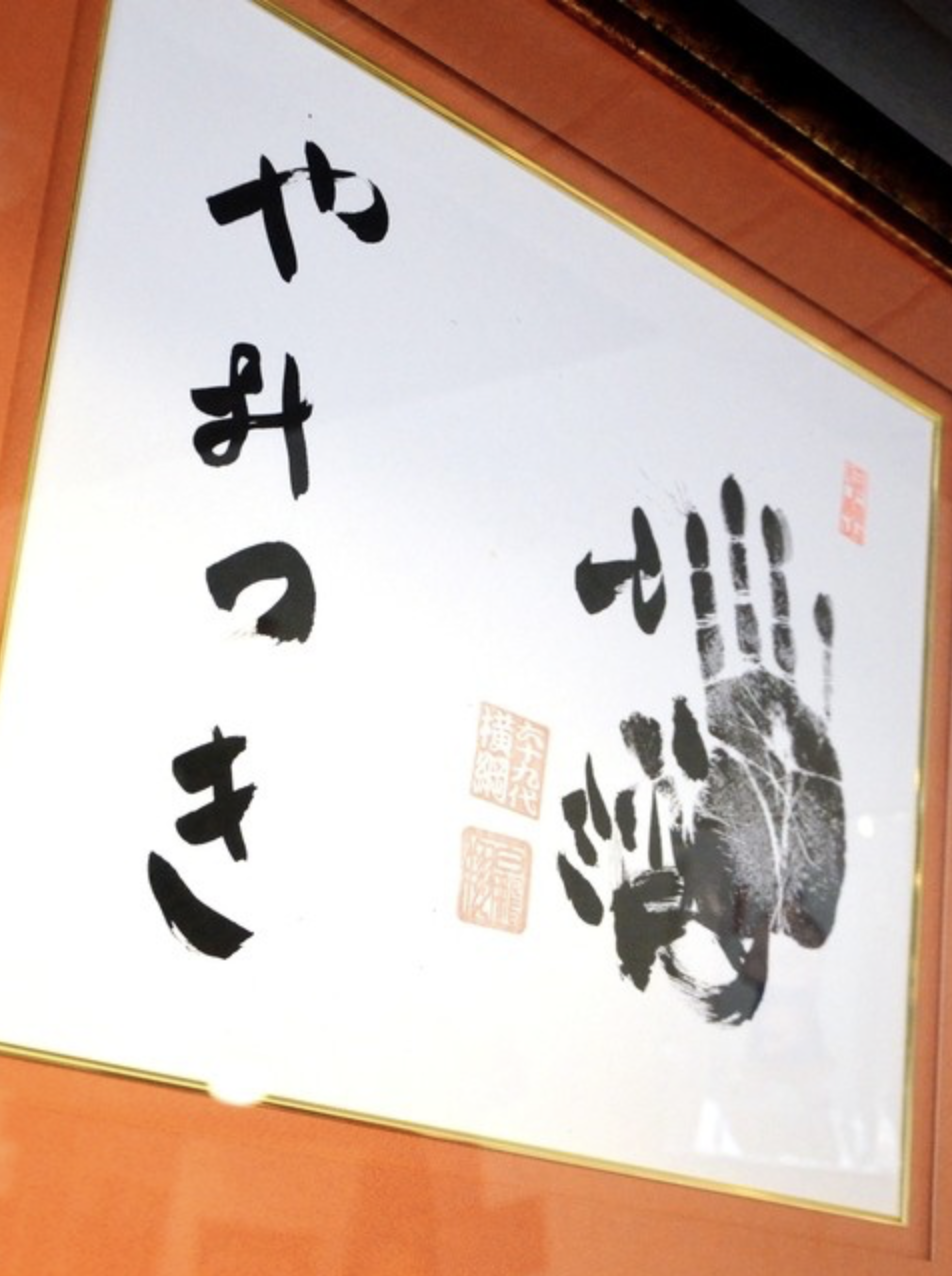 白鵬
六十九代
横綱
やみつき